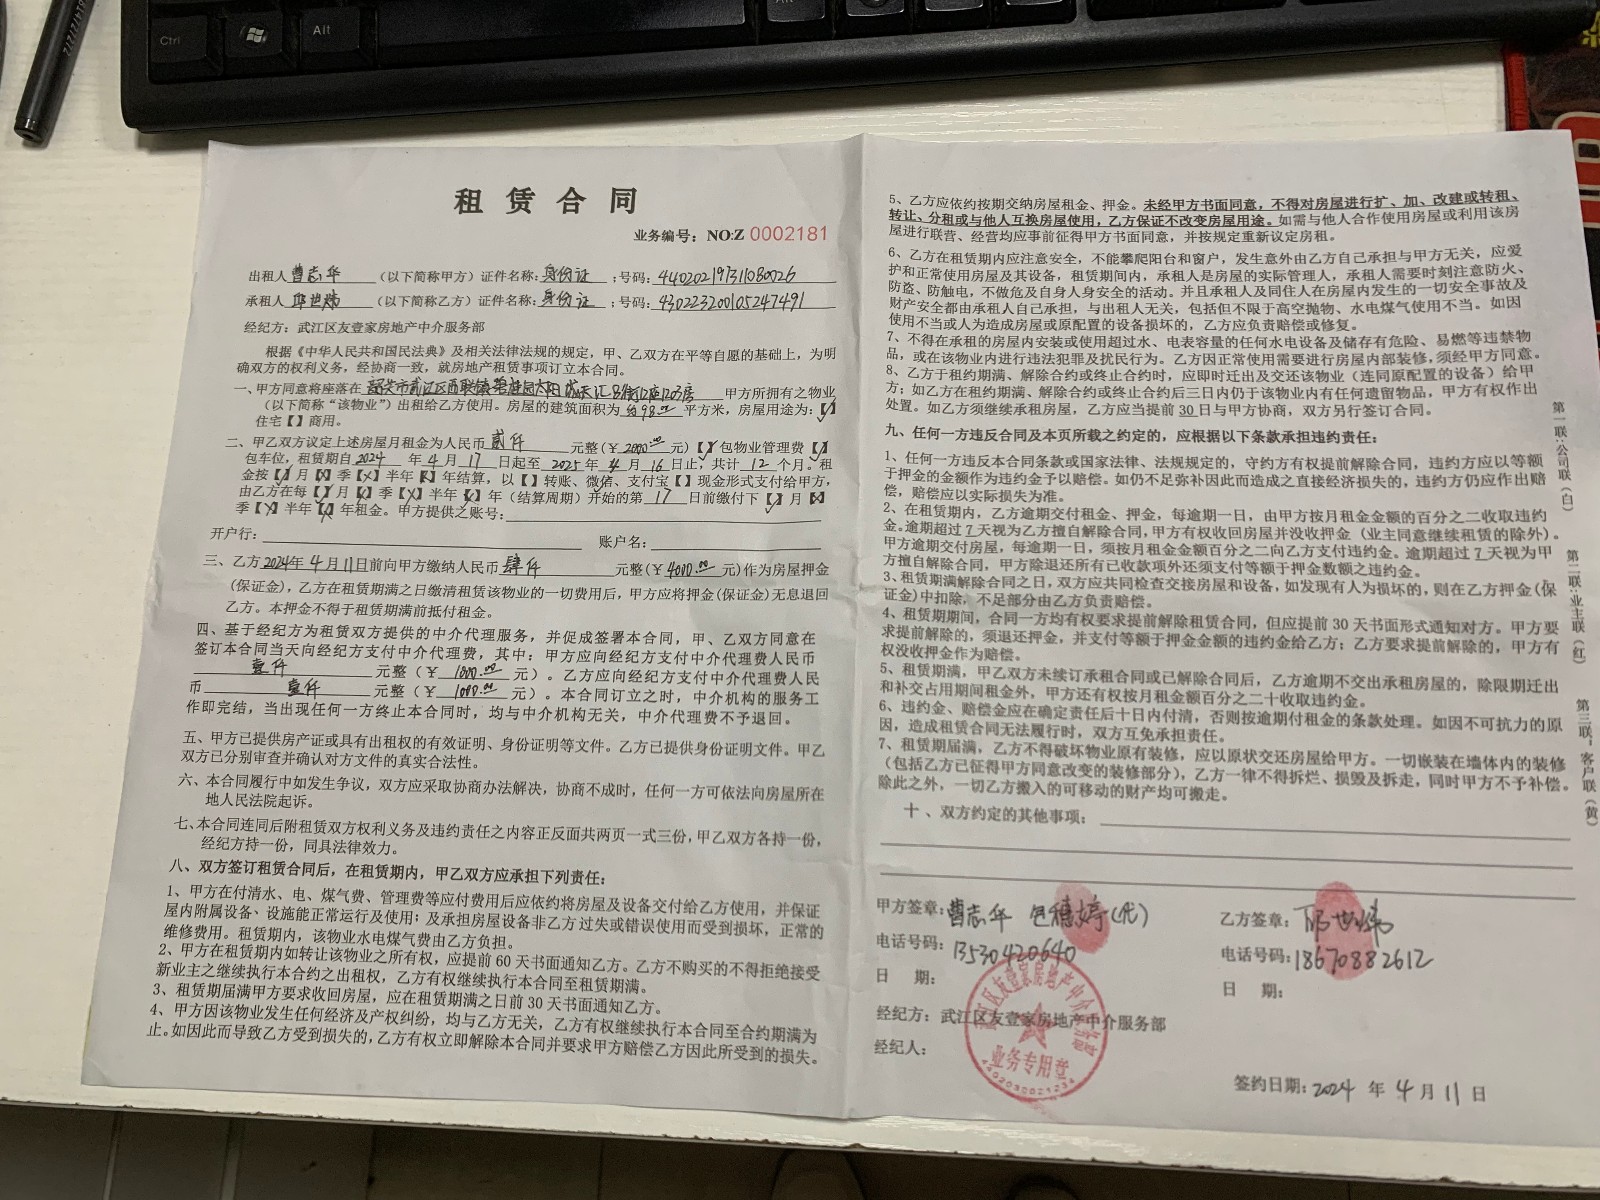 Ctrl
Alt
租赁合同
业务编号：NO:Z 0002181
出租人 曹志华 （以下简称甲方）证件名称：身份证 ；号码：440202197311080026
承租人 （以下简称乙方）证件名称：身份证 ；号码：430223200105247491
经纪方：武江区友壹家房地产中介服务部
根据《中华人民共和国民法典》及相关法律法规的规定，甲、乙双方在平等自愿的基础上，为明
确双方的权利义务，经协商一致，就房地产租赁事项订立本合同。
一、甲方同意将座落在 韶关市武江区西联镇碧桂园太阳城天汇 座1203房 甲方所拥有之物业
（以下简称“该物业”）出租给乙方使用。房屋的建筑面积为 约98.00 平方米，房屋用途为：【✓】
住宅【】商用。
二、甲乙双方议定上述房屋月租金为人民币 贰仟 元整（￥2000.00元）【✓】包物业管理费【】
包车位，租赁期自 2024 年 4 月 17 日起至 2025 年 4 月 16 日止，共计 12 个月。租
金按【✓】月【X】季【X】半年【X】年结算，以【】转账、微信、支付宝【】现金形式支付给甲方，
由乙方在每【✓】月【X】季【X】半年【X】年（结算周期）开始的第 17 日前缴付下【✓】月【X】
季【X】半年【X】年租金。甲方提供之账号：
开户行： 账户名：
三、乙方 2024年4月11日前向甲方缴纳人民币 肆仟 元整（￥4000.00元）作为房屋押金
（保证金），乙方在租赁期满之日缴清租赁该物业的一切费用后，甲方应将押金（保证金）无息退回
乙方。本押金不得于租赁期满前抵付租金。
四、基于经纪方为租赁双方提供的中介代理服务，并促成签署本合同，甲、乙双方同意在
签订本合同当天向经纪方支付中介代理费，其中：甲方应向经纪方支付中介代理费人民币
壹仟 元整（￥ 1000.00 元）。乙方应向经纪方支付中介代理费人民
币 壹仟 元整（￥ 1000.00 元）。本合同订立之时，中介机构的服务工
作即完结，当出现任何一方终止本合同时，均与中介机构无关，中介代理费不予退回。
五、甲方已提供房产证或具有出租权的有效证明、身份证明等文件。乙方已提供身份证明文件。甲乙
双方已分别审查并确认对方文件的真实合法性。
六、本合同履行中如发生争议，双方应采取协商办法解决，协商不成时，任何一方可依法向房屋所在
地人民法院起诉。
七、本合同连同后附租赁双方权利义务及违约责任之内容正反面共两页一式三份，甲乙双方各持一份，
经纪方持一份，同具法律效力。
八、双方签订租赁合同后，在租赁期内，甲乙双方应承担下列责任：
1、甲方在付清水、电、煤气费、管理费等应付费用后应依约将房屋及设备交付给乙方使用，并保证
屋内附属设备、设施能正常运行及使用；及承担房屋设备非乙方过失或错误使用而受到损坏，正常的
维修费用。租赁期内，该物业水电煤气费由乙方负担。
2、甲方在租赁期内如转让该物业之所有权，应提前60天书面通知乙方。乙方不购买的不得拒绝接受
新业主之继续执行本合约之出租权，乙方有权继续执行本合同至租赁期满。
3、租赁期届满甲方要求收回房屋，应在租赁期满之日前30天书面通知乙方。
4、甲方因该物业发生任何经济及产权纠纷，均与乙方无关，乙方有权继续执行本合同至合约期满为
止。如因此而导致乙方受到损失的，乙方有权立即解除本合同并要求甲方赔偿乙方因此所受到的损失。
5、乙方应依约按期交纳房屋租金、押金。未经甲方书面同意，不得对房屋进行扩、加、改建或转租、
转让、分租或与他人互换房屋使用，乙方保证不改变房屋用途。如需与他人合作使用房屋或利用该房
屋进行联营、经营均应事前征得甲方书面同意，并按规定重新议定房租。
6、乙方在租赁期内应注意安全，不能攀爬阳台和窗户，发生意外由乙方自己承担与甲方无关，应爱
护和正常使用房屋及其设备，租赁期间内，承租人是房屋的实际管理人，承租人需要时刻注意防火、
防盗、防触电，不做危及自身人身安全的活动。并且承租人及同住人在房屋内发生的一切安全事故及
财产安全都由承租人自己承担，与出租人无关，包括但不限于高空抛物、水电煤气使用不当。如因
使用不当或人为造成房屋或原配置的设备损坏的，乙方应负责赔偿或修复。
7、不得在承租的房屋内安装或使用超过水、电表容量的任何水电设备及储存有危险、易燃等违禁物
品，或在该物业内进行违法犯罪及扰民行为。乙方因正常使用需要进行房屋内部装修，须经甲方同意。
8、乙方于租约期满、解除合约或终止合约时，应即时迁出及交还该物业（连同原配置的设备）给甲
方；如乙方在租约期满、解除合约或终止合约后三日内仍于该物业内有任何遗留物品，甲方有权作出
处置。如乙方须继续承租房屋，乙方应当提前30日与甲方协商，双方另行签订合同。
九、任何一方违反合同及本页所载之约定的，应根据以下条款承担违约责任：
1、任何一方违反本合同条款或国家法律、法规规定的，守约方有权提前解除合同，违约方应以等额
于押金的金额作为违约金予以赔偿。如仍不足弥补因此而造成之直接经济损失的，违约方仍应作出赔
偿，赔偿应以实际损失为准。
2、在租赁期内，乙方逾期交付租金、押金，每逾期一日，由甲方按月租金金额的百分之二收取违约
金。逾期超过7天视为乙方擅自解除合同，甲方有权收回房屋并没收押金（业主同意继续租赁的除外）。
甲方逾期交付房屋，每逾期一日，须按月租金金额百分之二向乙方支付违约金。逾期超过7天视为甲
方擅自解除合同，甲方除退还所有已收款项外还须支付等额于押金数额之违约金。
3、租赁期满解除合同之日，双方应共同检查交接房屋和设备，如发现有人为损坏的，则在乙方押金（保
证金）中扣除，不足部分由乙方负责赔偿。
4、租赁期期间，合同一方均有权要求提前解除租赁合同，但应提前30天书面形式通知对方。甲方要
求提前解除的，须退还押金，并支付等额于押金金额的违约金给乙方；乙方要求提前解除的，甲方有
权没收押金作为赔偿。
5、租赁期满，甲乙双方未续订承租合同或已解除合同后，乙方逾期不交出承租房屋的，除限期迁出
和补交占用期间租金外，甲方还有权按月租金额百分之二十收取违约金。
6、违约金、赔偿金应在确定责任后十日内付清，否则按逾期付租金的条款处理。如因不可抗力的原
因，造成租赁合同无法履行时，双方互免承担责任。
7、租赁期届满，乙方不得破坏物业原有装修，应以原状交还房屋给甲方。一切嵌装在墙体内的装修
（包括乙方已征得甲方同意改变的装修部分），乙方一律不得拆烂、损毁及拆走，同时甲方不予补偿。
除此之外，一切乙方搬入的可移动的财产均可搬走。
十、双方约定的其他事项：
甲方签章：曹志华 包穗婷（代）
电话号码：13530420640
日 期：
经纪方：武江区友壹家房地产中介服务部
经纪人：
乙方签章：
电话号码：18670882612
日 期：
签约日期：2024 年 4 月 11 日
武江区友壹家房地产中介服务部
业务专用章
第一联：公司联（白）
第二联：业主联（红）
第三联：客户联（黄）